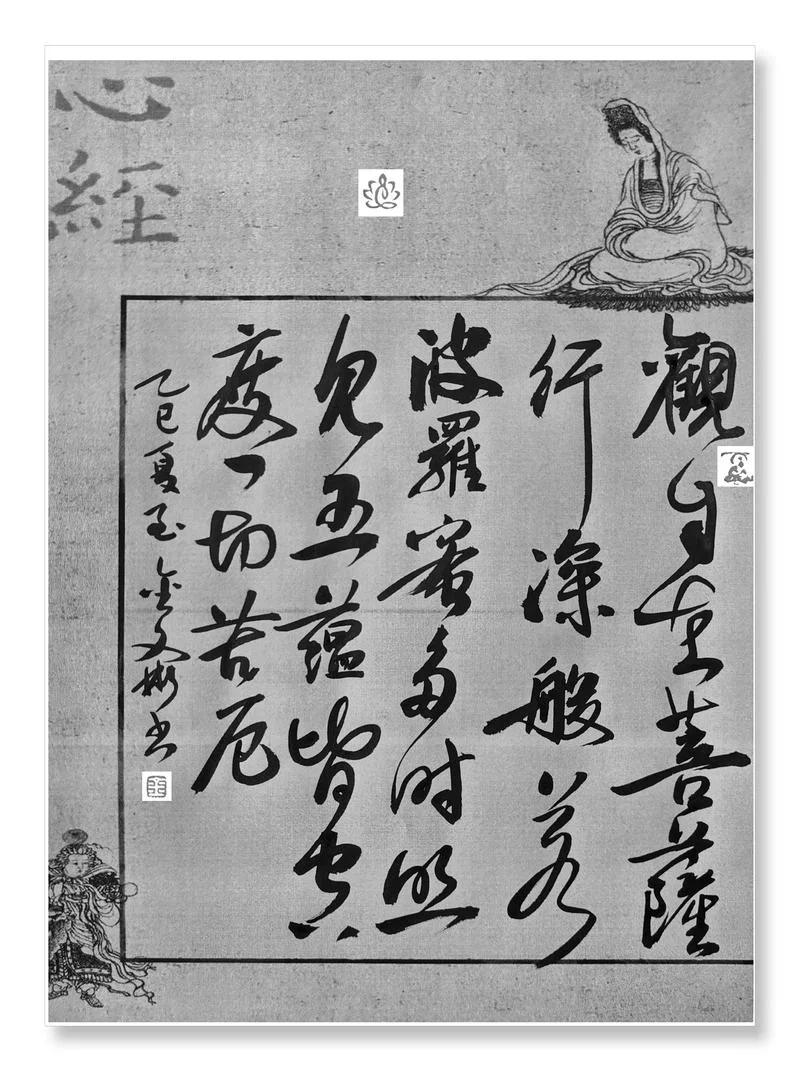 心經
觀自在菩薩
行深般若
波羅蜜多時照
見五蘊皆空
度一切苦厄
乙巳夏至金文彬書